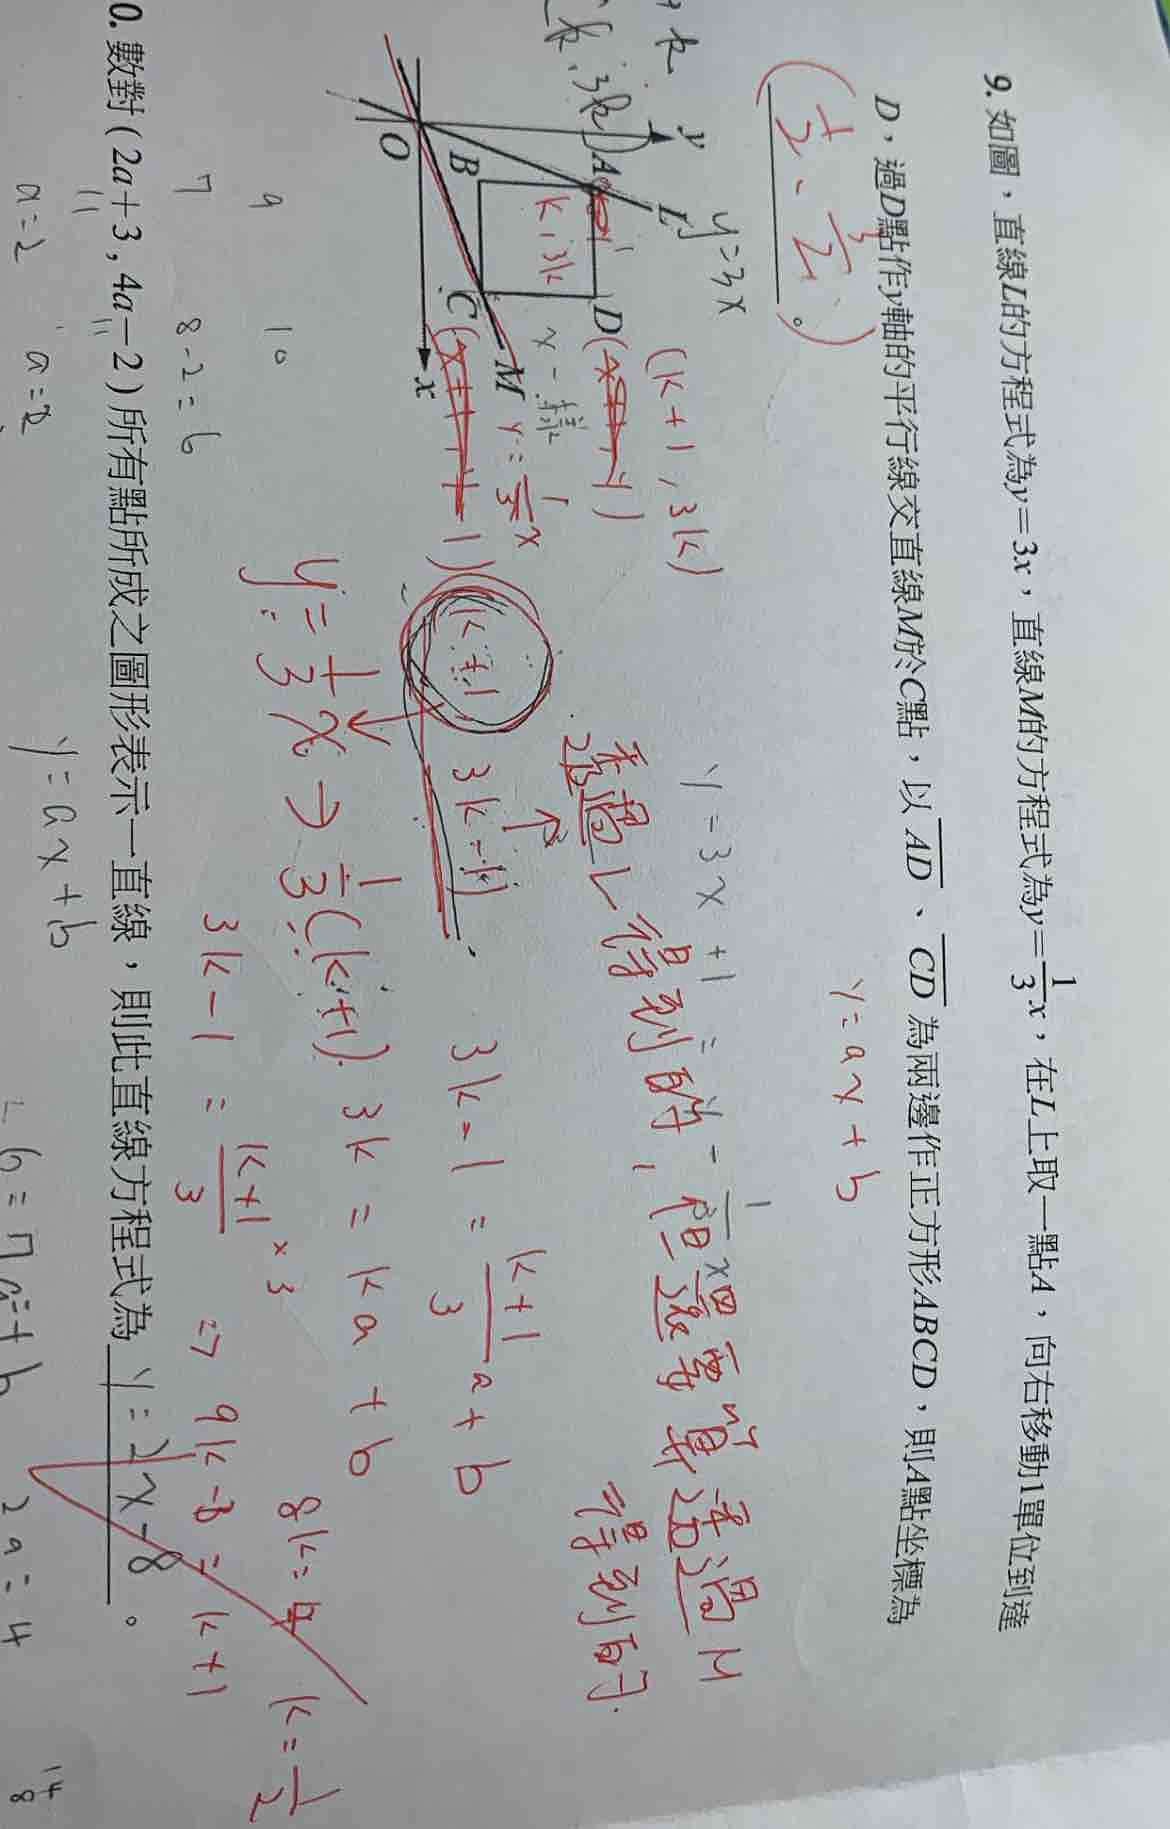 9. 如圖，直線L的方程式為y=3x，直線M的方程式為y=1/3x，在L上取一點A，向右移動1單位到達
D，過D點作y軸的平行線交直線M於C點，以AD、CD為兩邊作正方形ABCD，則A點坐標為
(1/2、3/2)。
y=ax+b
y=3x
(k+1,3k)
y=3x+1
y
L
A
D
k,3k
B
C
M
O
x
y=1/3x
k+1
3k-1
透過L得到的，但還需算透過M
得到的.
3k-1=k+1/3
a+b
y=1/3x→1/3(k+1)
3k=ka+b
3k-1=k+1/3×3
⇒9k-3=k+1
8k=4
k=1/2
9 10
7 8-2=6
0. 數對(2a+3,4a-2)所有點所成之圖形表示一直線，則此直線方程式為y=2x-8。
a=2
a=2
y=ax+b
6=7a+b
2a=4